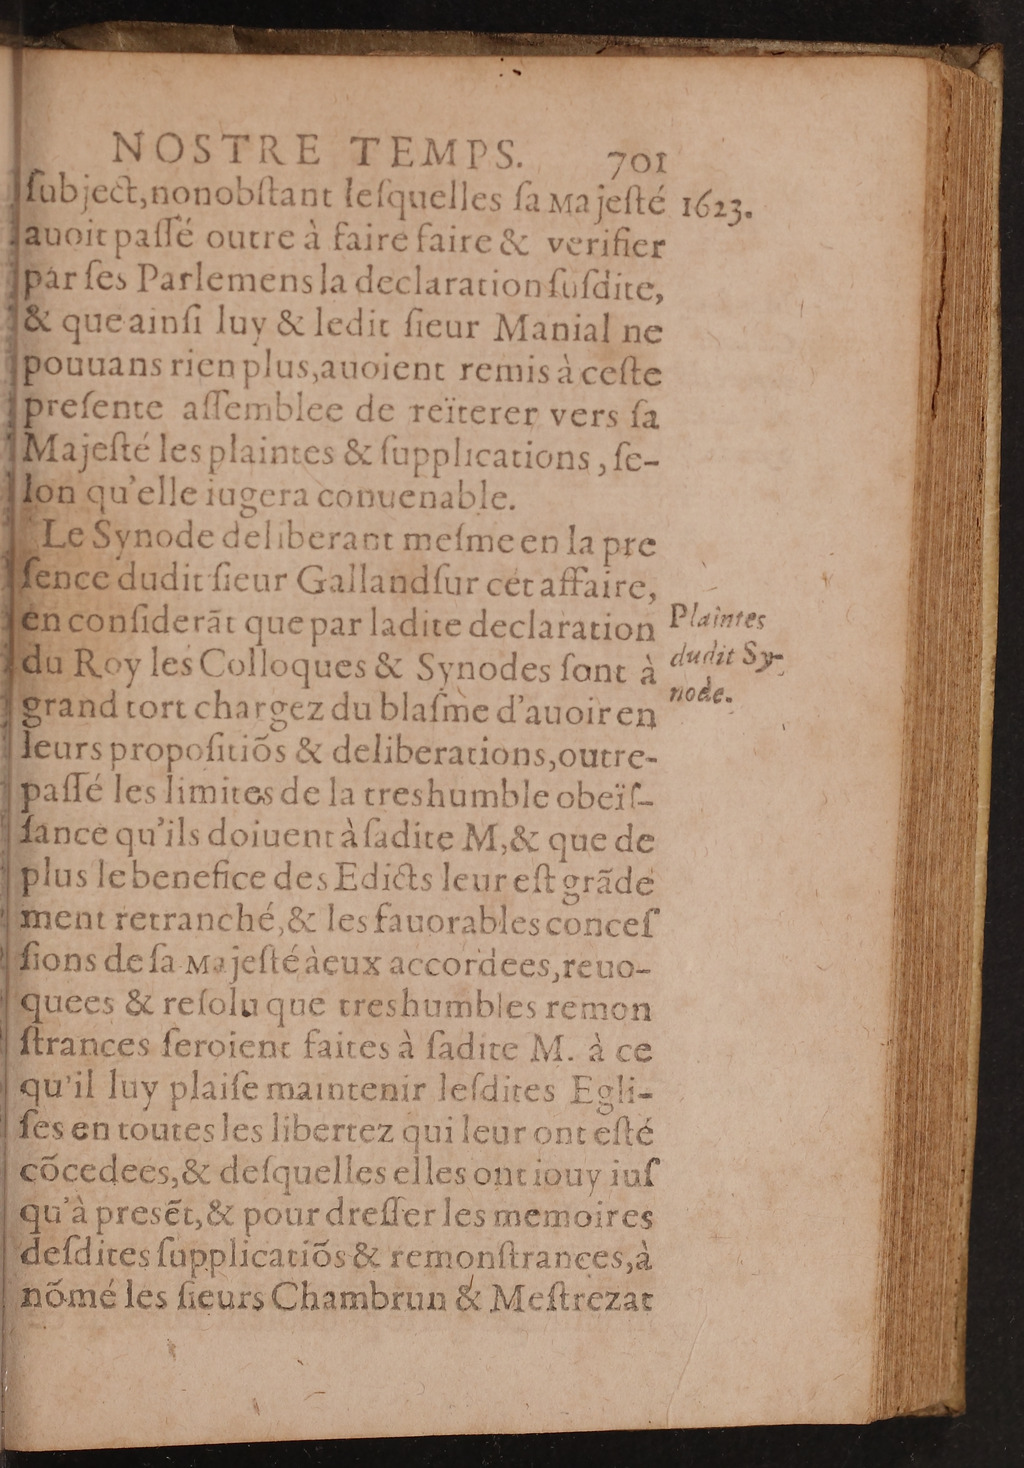 NOSTRE TEMPS. 701
ſubject, nonobſtant leſquelles ſa Majeſté 1623.
auoit paſſé outre à faire faire & verifier
par ſes Parlemens la declaration ſuſdite,
& que ainſi luy & ledit ſieur Manial ne
pouuans rien plus, auoient remis à ceſte
preſente aſſemblee de reïterer vers ſa
Majeſté les plaintes & ſupplications, ſe-
lon qu'elle iugera conuenable.
Le Synode deliberant meſme en la pre
ſence dudit ſieur Galland ſur cet affaire,
en conſiderāt que par ladite declaration
du Roy les Colloques & Synodes ſont à
grand tort chargez du blaſme d'auoir en
leurs propoſitiōs & deliberations, outre-
paſſé les limites de la treshumble obeïſ-
ſance qu'ils doiuent à ſadite M, & que de
plus le benefice des Edicts leur eſt grāde
ment retranché, & les fauorables conceſ
ſions de ſa Majeſté à eux accordees, reuo-
quees & reſolu que treshumbles remon
ſtrances ſeroient faites à ſadite M. à ce
qu'il luy plaiſe maintenir leſdites Egli-
ſes en toutes les libertez qui leur ont eſté
cōcedees, & deſquelles elles ont iouy iuſ
qu'à presēt, & pour dreſſer les memoires
deſdites ſupplicatiōs & remonſtrances, à
nōmé les ſieurs Chambrun & Meſtrezat
Plaintes
dudit Sy-
node.